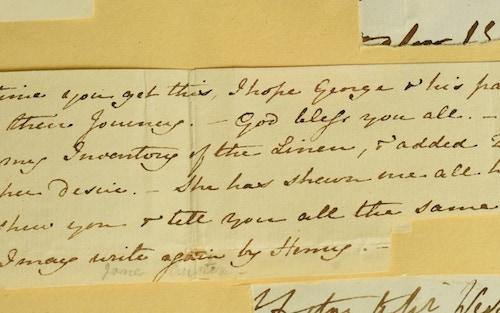 time you get this, I hope George & his pa
their Journey. — God bless you all. —
my Inventory of the Linen, & added 2
her desire. — She has shewn me all h
shew you & tell you all the same
I may write again by Henry. —
Jane Austen